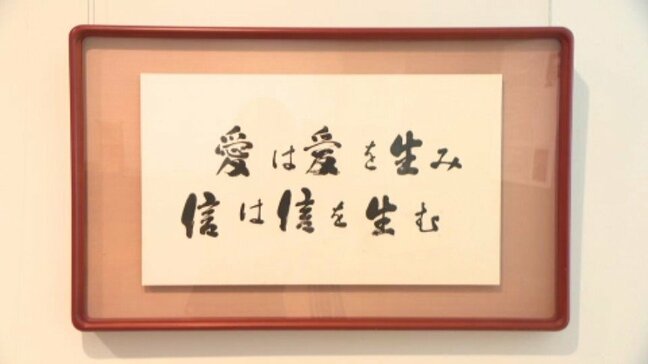 愛は愛を生み
信は信を生む